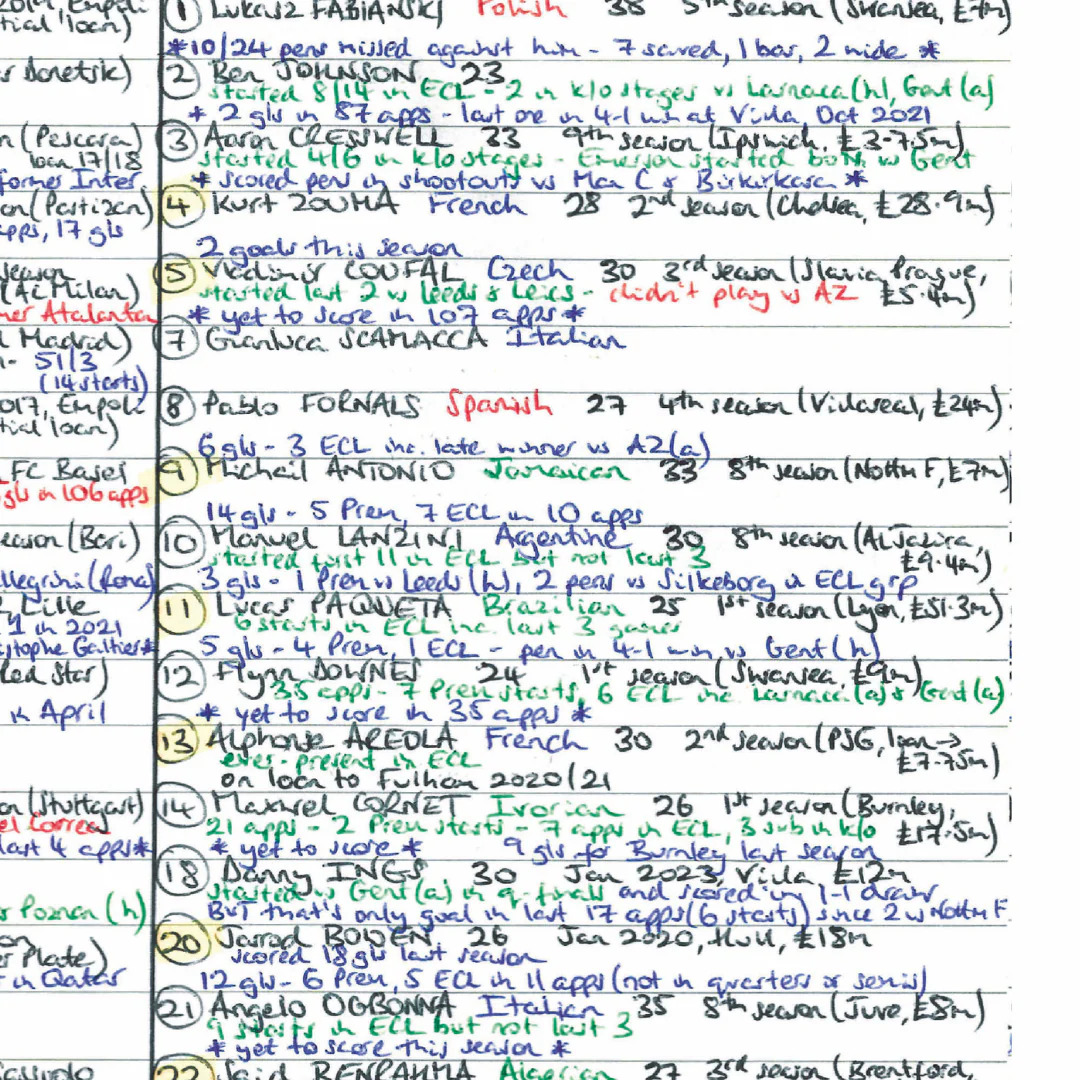 tial loan)
r Donetsk)
n (Pescara)
loan 17/18
former Inter
on (Partizan)
apps, 17 gls
season
(AC Milan)
mer Atalanta
l Madrid)
- 51/3
(14 starts)
2017, Empoli
tial loan)
FC Basel
gls in 106 apps
eason (Bari)
llegrini (Roma)
Lille
1 in 2021
stophe Galtier*
Red Star)
in April
on (Stuttgart)
el Correa
last 4 apps*
s Poznan (h)
on
er Plate)
in Qatar
Sassuolo
1 Lukasz FABIANSKI Polish 38 5th season (Swansea, £7m)
*10/24 pens missed against him - 7 saved, 1 bar, 2 wide *
2 Ben JOHNSON 23
started 8/14 in ECL - 2 in k/o stages vs Larnaca (h), Gent (a)
* 2 gls in 87 apps - last one in 4-1 win at Villa, Oct 2021
3 Aaron CRESSWELL 33 9th season (Ipswich, £3.75m)
started 4/6 in k/o stages - Emerson started both vs Gent
* scored pens in shootouts vs Man C & Birkirkara *
4 Kurt ZOUMA French 28 2nd season (Chelsea, £28.9m)
2 goals this season
5 Vladimir COUFAL Czech 30 3rd season (Slavia Prague,
started last 2 vs Leeds & Leics - didn't play vs AZ £5.4m)
* yet to score in 107 apps *
7 Gianluca SCAMACCA Italian
8 Pablo FORNALS Spanish 27 4th season (Villareal, £24m)
6 gls - 3 ECL inc. late winner vs AZ (a)
9 Michail ANTONIO Jamaican 33 8th season (Nottm F, £7m)
14 gls - 5 Prem, 7 ECL in 10 apps
10 Manuel LANZINI Argentine 30 8th season (Al Jazira,
started first 11 in ECL but not last 3 £9.4m)
3 gls - 1 Prem vs Leeds (h), 2 pens vs Silkeborg in ECL grp
11 Lucas PAQUETA Brazilian 25 1st season (Lyon, £51.3m)
6 starts in ECL inc. last 3 games
5 gls - 4 Prem, 1 ECL - pen in 4-1 win vs Gent (h)
12 Flynn DOWNES 24 1st season (Swansea £9m)
35 apps - 7 Prem starts, 6 ECL inc Larnaca (a) & Gent (a)
* yet to score in 35 apps *
13 Alphonse AREOLA French 30 2nd season (PSG, loan →
ever-present in ECL £7.75m)
on loan to Fulham 2020/21
14 Maxwel CORNET Ivorian 26 1st season (Burnley,
21 apps - 2 Prem starts - 7 apps in ECL, 3 sub in k/o £17.5m)
* yet to score * 9 gls for Burnley last season
18 Danny INGS 30 Jan 2023, Villa £12m
started vs Gent (a) in q-finals and scored in 1-1 draw
BUT that's only goal in last 17 apps (6 starts) since 2 vs Nottm F
20 Jarrod BOWEN 26 Jan 2020, Hull, £18m
scored 18 gls last season
12 gls - 6 Prem, 5 ECL in 11 apps (not in quarters or semis)
21 Angelo OGBONNA Italian 35 8th season (Juve, £8m)
9 starts in ECL but not last 3
* yet to score this season *
22 Said BENRAHMA Algerian 27 3rd season (Brentford,